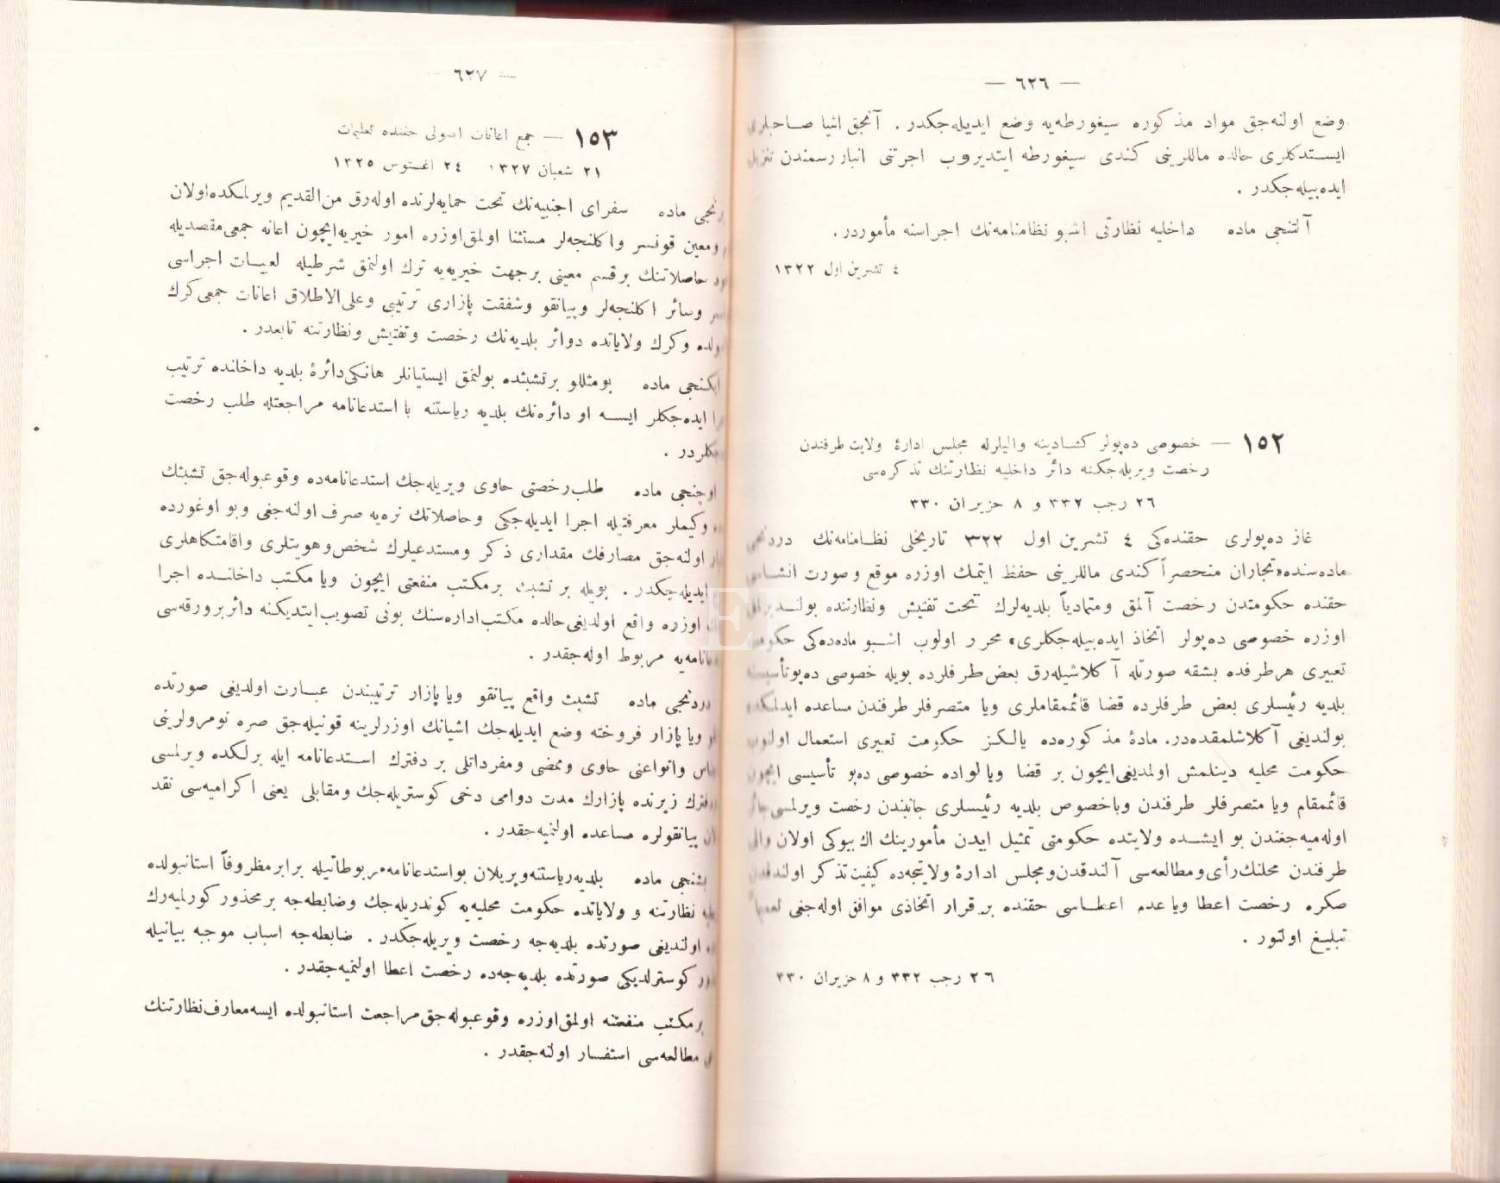 — ٦٢٦ —
وضع اولنه‌جق مواد مذكوره سيغورطه‌يه وضع ايديله‌جكدر . آنجق اشيا صاحبلرى
ايستدكلرى حالده ماللرينى كندى سيغورطه ايتديروب اجرتنى انبار رسمندن تنزيل
ايده‌بيله‌جكدر .
آلتنجى ماده داخليه نظارتى اشبو نظامنامه‌نك اجراسنه مأموردر .
٤ تشرين اول ١٣٢٢
١٥٢ — خصوصى ده‌پولر كشادينه واليلرله مجلس ادارهٔ ولايت طرفندن
رخصت ويريله‌جكنه دائر داخليه نظارتنك تذكره‌سى
٢٦ رجب ٣٣٢ و ٨ حزيران ٣٣٠
غاز ده‌پولرى حقنده‌كى ٤ تشرين اول ٣٢٢ تاريخلى نظامنامه‌نك دردنجى
ماده‌سنده «تجاران منحصراً كندى ماللرينى حفظ ايتمك اوزره موقع وصورت انشاسى
حقنده حكومتدن رخصت آلمق ومتمادياً بلديه‌لرك تحت تفتيش ونظارتنده بولنديرلمق
اوزره خصوصى ده‌پولر اتخاذ ايده‌بيله‌جكلرى» محرر اولوب اشبو ماده‌ده‌كى حكومت
تعبيرى هر طرفده بشقه صورتله آكلاشيله‌رق بعض طرفلرده بويله خصوصى ده‌پو تأسيسنه
بلديه رئيسلرى بعض طرفلرده قضا قائممقاملرى ويا متصرفلر طرفندن مساعده ايدلمكده
بولنديغى آكلاشلمقده‌در. مادهٔ مذكوره‌ده يالكز حكومت تعبيرى استعمال اولنوب
حكومت محليه دينلمش اولمديغى ايچون بر قضا ويا لواده خصوصى ده‌پو تأسيسى ايچون
قائممقام ويا متصرفلر طرفندن وباخصوص بلديه رئيسلرى جانبندن رخصت ويرلمسى جائز
اوله‌ميه‌جغندن بو ايشده ولايتده حكومتى تمثيل ايدن مأمورينك اك بيوكى اولان والى
طرفندن محلنك رأى ومطالعه‌سى آلندقدن ومجلس ادارهٔ ولايتجه‌ده كيفيت تذكر اولندقدن
صكره رخصت اعطا ويا عدم اعطاسى حقنده بر قرار اتخاذى موافق اوله‌جغى تعميماً
تبليغ اولنور .
٢٦ رجب ٣٣٢ و ٨ حزيران ٣٣٠
— ٦٢٧ —
١٥٣ — جمع اعانات اصولى حقنده تعليمات
٢١ شعبان ١٣٢٧ ٢٤ اغستوس ١٣٢٥
ماده سفراى اجنبيه‌نك تحت حمايه‌لرنده اوله‌رق من‌القديم ويرلمكده اولان
ومعين قونسر واكلنجه‌لر مستثنا اولمق اوزره امور خيريه ايچون اعانه جمعى مقصديله
حاصلاتنك بر قسم معينى بر جهت خيريه‌يه ترك اولنمق شرطيله لعبيات اجراسى
وسائر اكلنجه‌لر وپيانقو وشفقت پازارى ترتيبى وعلى‌الاطلاق اعانات جمعى كرك
وكرك ولاياتده دوائر بلديه‌نك رخصت وتفتيش ونظارتنه تابعدر .
ايكنجى ماده بومثللو بر تشبثده بولنمق ايستيانلر هانكى دائرهٔ بلديه داخلنده ترتيب
ايده‌جكلر ايسه او دائره‌نك بلديه رياستنه با استدعانامه مراجعتله طلب رخصت
اوچنجى ماده طلب رخصتى حاوى ويريله‌جك استدعانامه‌ده وقوعبوله‌جق تشبثك
وكيملر معرفتيله اجرا ايديله‌جكى وحاصلاتك نره‌يه صرف اولنه‌جغى وبو اوغورده
اولنه‌جق مصارفك مقدارى ذكر ومستدعيلرك شخص وهويتلرى واقامتكاهلرى
ايديله‌جكدر . بويله بر تشبث بر مكتب منفعتى ايچون ويا مكتب داخلنده اجرا
اوزره واقع اولديغى حالده مكتب اداره‌سنك بونى تصويب ايتديكنه دائر بر ورقه‌سى
مربوط اوله‌جقدر .
دردنجى ماده تشبث واقع پيانقو ويا پازار ترتيبندن عبارت اولديغى صورتده
ويا پازار فروخته وضع ايديله‌جك اشيانك اوزرلرينه قونيله‌جق صره نومرولرينى
وانواعنى حاوى وممضى ومفرداتلى بر دفترك استدعانامه ايله برلكده ويرلمسى
زيرنده پازارك مدت دوامى دخى كوستريله‌جك ومقابلى يعنى اكراميه‌سى نقد
پيانقولره مساعده اولنميه‌جقدر .
بشنجى ماده بلديه رياستنه ويريلان بو استدعانامه مربوطاتيله برابر مظروفاً استانبولده
نظارتنه و ولاياتده حكومت محليه‌يه كوندريله‌جك وضابطه‌جه بر محذور كورلميه‌رك
اولنديغى صورتده بلديه‌جه رخصت ويريله‌جكدر . ضابطه‌جه اسباب موجبه بيانيله
كوسترلديكى صورتده بلديه‌جه‌ده رخصت اعطا اولنميه‌جقدر .
بر مكتب منفعتنه اولمق اوزره وقوعبوله‌جق مراجعت استانبولده ايسه معارف نظارتنك
مطالعه‌سى استفسار اولنه‌جقدر .